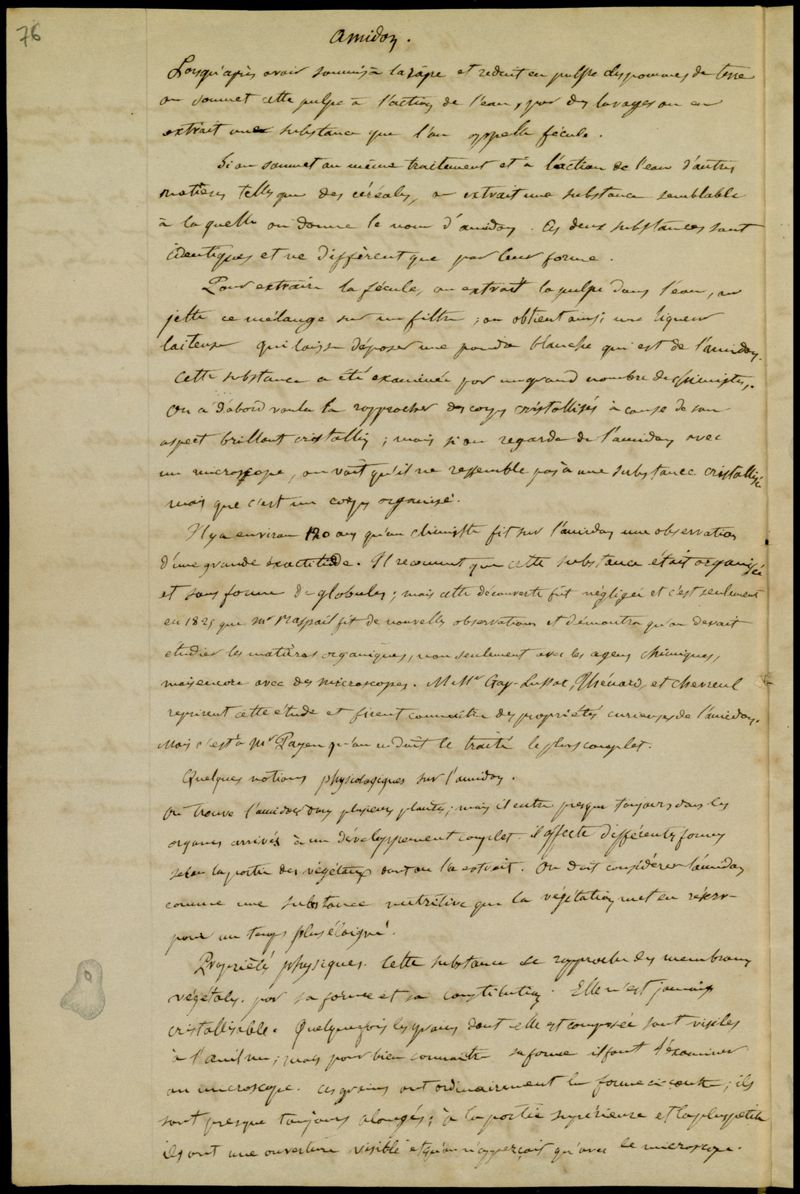 76
Amidon.
Lorsqu'après avoir soumis à la râpe et réduit en pulpe des pommes de terre
on soumet cette pulpe à l'action de l'eau, par des lavages on en
extrait une substance que l'on appelle fécule.
Si on soumet au même traitement et à l'action de l'eau d'autres
matières telles que des céréales, on extrait une substance semblable
à laquelle on donne le nom d'amidon. Ces deux substances sont
identiques et ne diffèrent que par leur forme.
Pour extraire la fécule, on extrait la pulpe dans l'eau, on
jette ce mélange sur un filtre ; on obtient ainsi une liqueur
laiteuse qui laisse déposer une poudre blanche qui est de l'amidon.
Cette substance a été examinée par un grand nombre de chimistes.
On a d'abord voulu la rapprocher des corps cristallisés à cause de son
aspect brillant cristallin ; mais si on regarde de l'amidon avec
un microscope, on voit qu'il ne ressemble pas à une substance cristallisée
mais que c'est un corps organisé.
Il y a environ 120 ans qu'un chimiste fit sur l'amidon une observation
d'une grande exactitude. Il reconnut que cette substance était organisée
et sous forme de globules ; mais cette découverte fut négligée et c'est seulement
en 1825 que Mr Raspail fit de nouvelles observations et démontra qu'on devait
étudier les matières organiques, non seulement avec les agens chimiques,
mais encore avec des microscopes. M Mrs Gay-Lussac, Thénard, et Chevreul
reprirent cette étude et firent connaître des propriétés curieuses de l'amidon.
Mais c'est à Mr Payen qu'on en doit le traité le plus complet.
Quelques notions physiologiques sur l'amidon.
On trouve l'amidon dans plusieurs plantes ; mais il entre presque toujours dans les
organes arrivés à un développement complet. il affecte différentes formes
selon la partie des végétaux dont on l'a extrait. On doit considérer l'amidon
comme une substance nutritive que la végétation met en réserve
pour un temps plus éloigné.
Propriétés physiques. Cette substance se rapproche des membranes
végétales par sa forme et sa constitution. Elle n'est jamais
cristallisable. Quelquefois les grains dont elle est composée sont visibles
à l'œil nu ; mais pour bien connaître sa forme il faut l'examiner
au microscope. ces grains ont ordinairement la forme ci-contre ; ils
sont presque toujours alongés ; à la partie supérieure et la plus petite
ils ont une ouverture visible et qu'on n'apperçoit qu'avec le microscope.